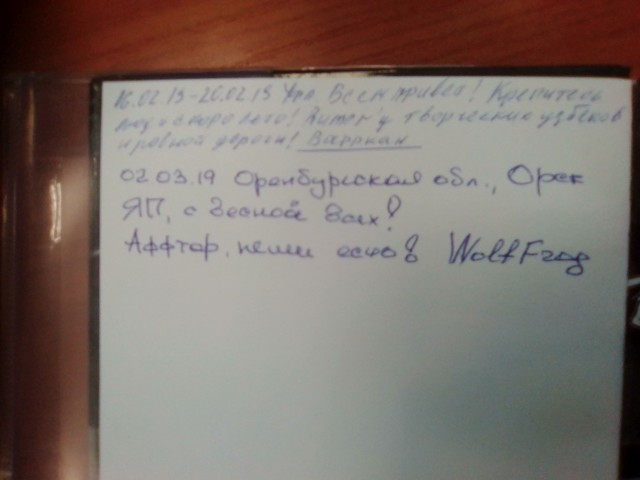 16.02.19-26.02.19 Уфа. Всем привет! Крепитесь
скоро лето! творчества узбеков
и ровной дороги! Варркан
02.03.19 Оренбургская обл., Орск
ЯП, с весной Вас!
Аффтар, пеши есчо WolfFrog